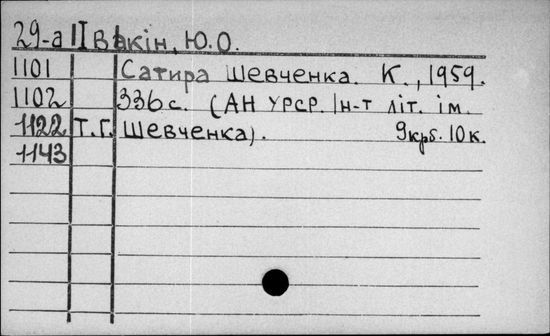 29-а Івакін, Ю.О.
1101 Сатира Шевченка. К., 1959.
1102 336 с. (АН УРСР. Ін-т літ. ім.
1122 Т.Г. Шевченка). 9крб. 10к.
1143